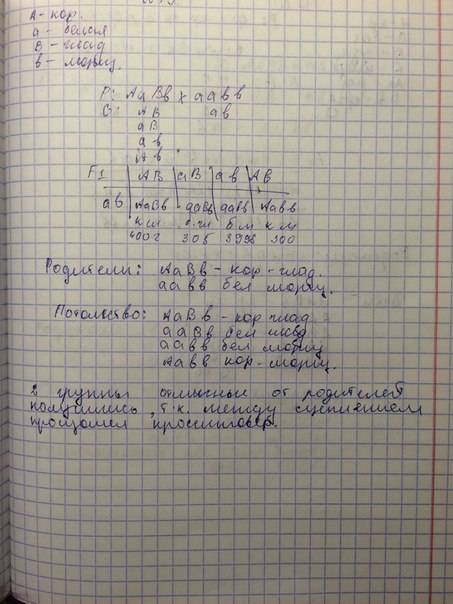 А - кор.
а - белая
В - глад
в - морщ.
Р: АаВв х аавв
G: АВ ав
аВ
ав
Ав
F1 АВ аВ ав Ав
ав АаВв ааВв аавв Аавв
к м
б м к м
4002 305 3998 300
Родители: АаВв - кор - глад.
аавв бел морщ.
Потомство: АаВв - кор глад
ааВв бел глад
аавв бел морщ
Аавв кор - морщ.
2 группы отличные от родителей
получились, т.к. между сцеплением
произошел кроссинговер.